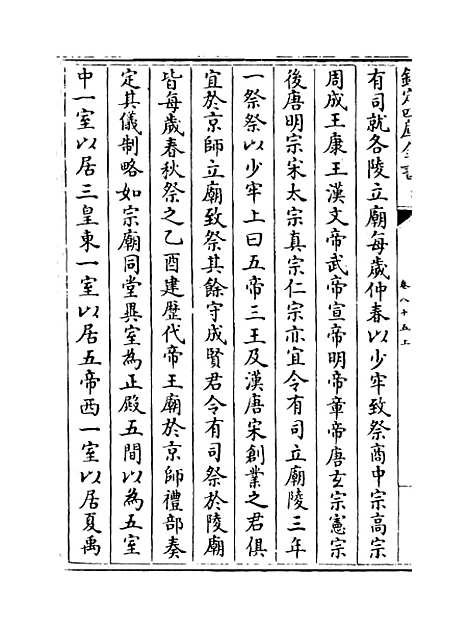 欽定四庫全書
卷八十五上
有司就各陵立廟每歲仲春以少牢致祭商中宗高宗
周成王康王漢文帝武帝宣帝明帝章帝唐玄宗憲宗
後唐明宗宋太宗真宗仁宗亦宜令有司立廟陵三年
一祭祭以少牢上曰五帝三王及漢唐宋創業之君俱
宜於京師立廟致祭其餘守成賢君令有司祭於陵廟
皆每歲春秋祭之乙酉建歴代帝王廟於京師禮部奏
定其儀制略如宗廟同堂異室為正殿五間以為五室
中一室以居三皇東一室以居五帝西一室以居夏禹